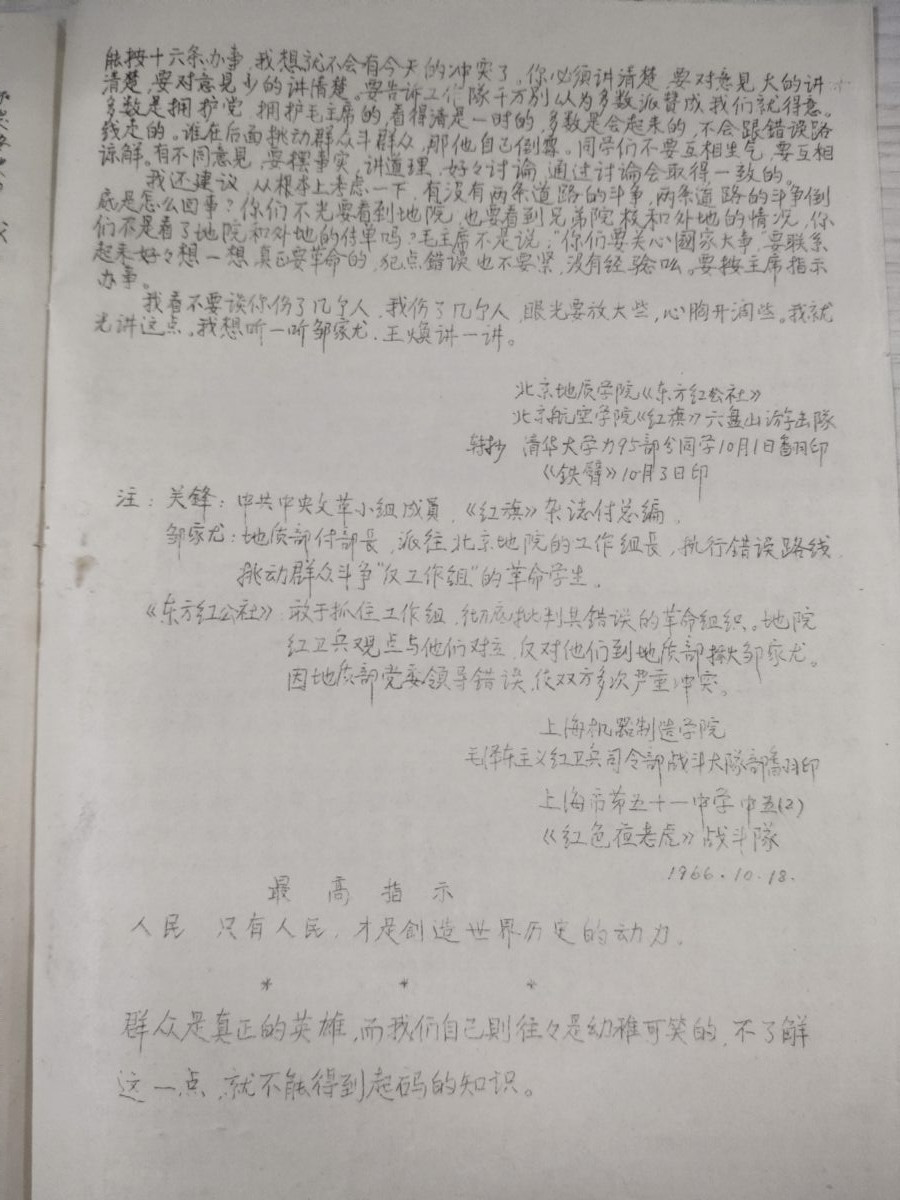 能按十六条办事，我想就不会有今天的冲突了。你必须讲清楚，要对意见大的讲
清楚，要对意见少的讲清楚。要告诉工作隊千万别认为多数派賛成我们就得意。
多数是拥护党，拥护毛主席的，看得清是一时的，多数是会起来的，不会跟错误路
线走的。谁在后面挑动群众斗群众，那他自己倒霉。同学们不要互相生气，要互相
谅解。有不同意见，要摆事实，讲道理，好々讨论，通过讨论会取得一致的。
我还建议，从根本上考虑一下，有没有两条道路的斗争，两条道路的斗争倒
底是怎么回事？你们不光要看到地院，也要看到兄弟院校和外地的情况，你
们不是看了地院和外地的传单吗？毛主席不是说："你们要关心國家大事"要联系
起来好々想一想，真正要革命的，犯点错误也不要紧，没有经验么。要按主席指示
办事。
我看不要谈你伤了几个人，我伤了几个人，眼光要放大些，心胸开阔些。我就
光讲这点。我想听一听邹家尤．王焕讲一讲。
北京地质学院《东方红公社》
北京航空学院《红旗》六盘山游击隊
转抄 清华大学力95部分同学10月1日翻印
《铁臂》10月3日印
注：关锋：中共中央文革小组成員，《红旗》杂誌付总编。
邹家尤：地质部付部長，派往北京地院的工作组長，执行错误路线，
挑动群众斗争"反工作组"的革命学生．
《东方红公社》：敢于抓住工作组，彻底批判其错误的革命组织。地院
红卫兵观点与他们对立，反对他们到地质部揪邹家尤。
因地质部党委领导错误，使双方多次严重冲突。
上海机器制造学院
毛泽东主义红卫兵司令部战斗大隊部翻印
上海市第五十一中学中五(2)
《红色夜老虎》战斗隊
1966.10.18.
最高指示
人民 只有人民，才是創造世界历史的动力。
* * *
群众是真正的英雄，而我们自己則往々是幼稚可笑的，不了解
这一点，就不能得到起码的知识。